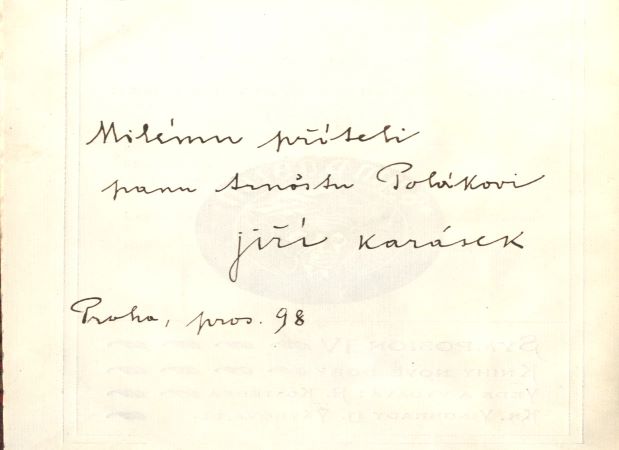 Milému příteli
panu Arnoštu Polákovi
Jiří Karásek
Praha, pros. 98
SYMPOSION IV
KNIHY NOVÉ DOBY
VEDE A VYDÁVÁ: H. KOSTERKA
KR. VINOHRADY